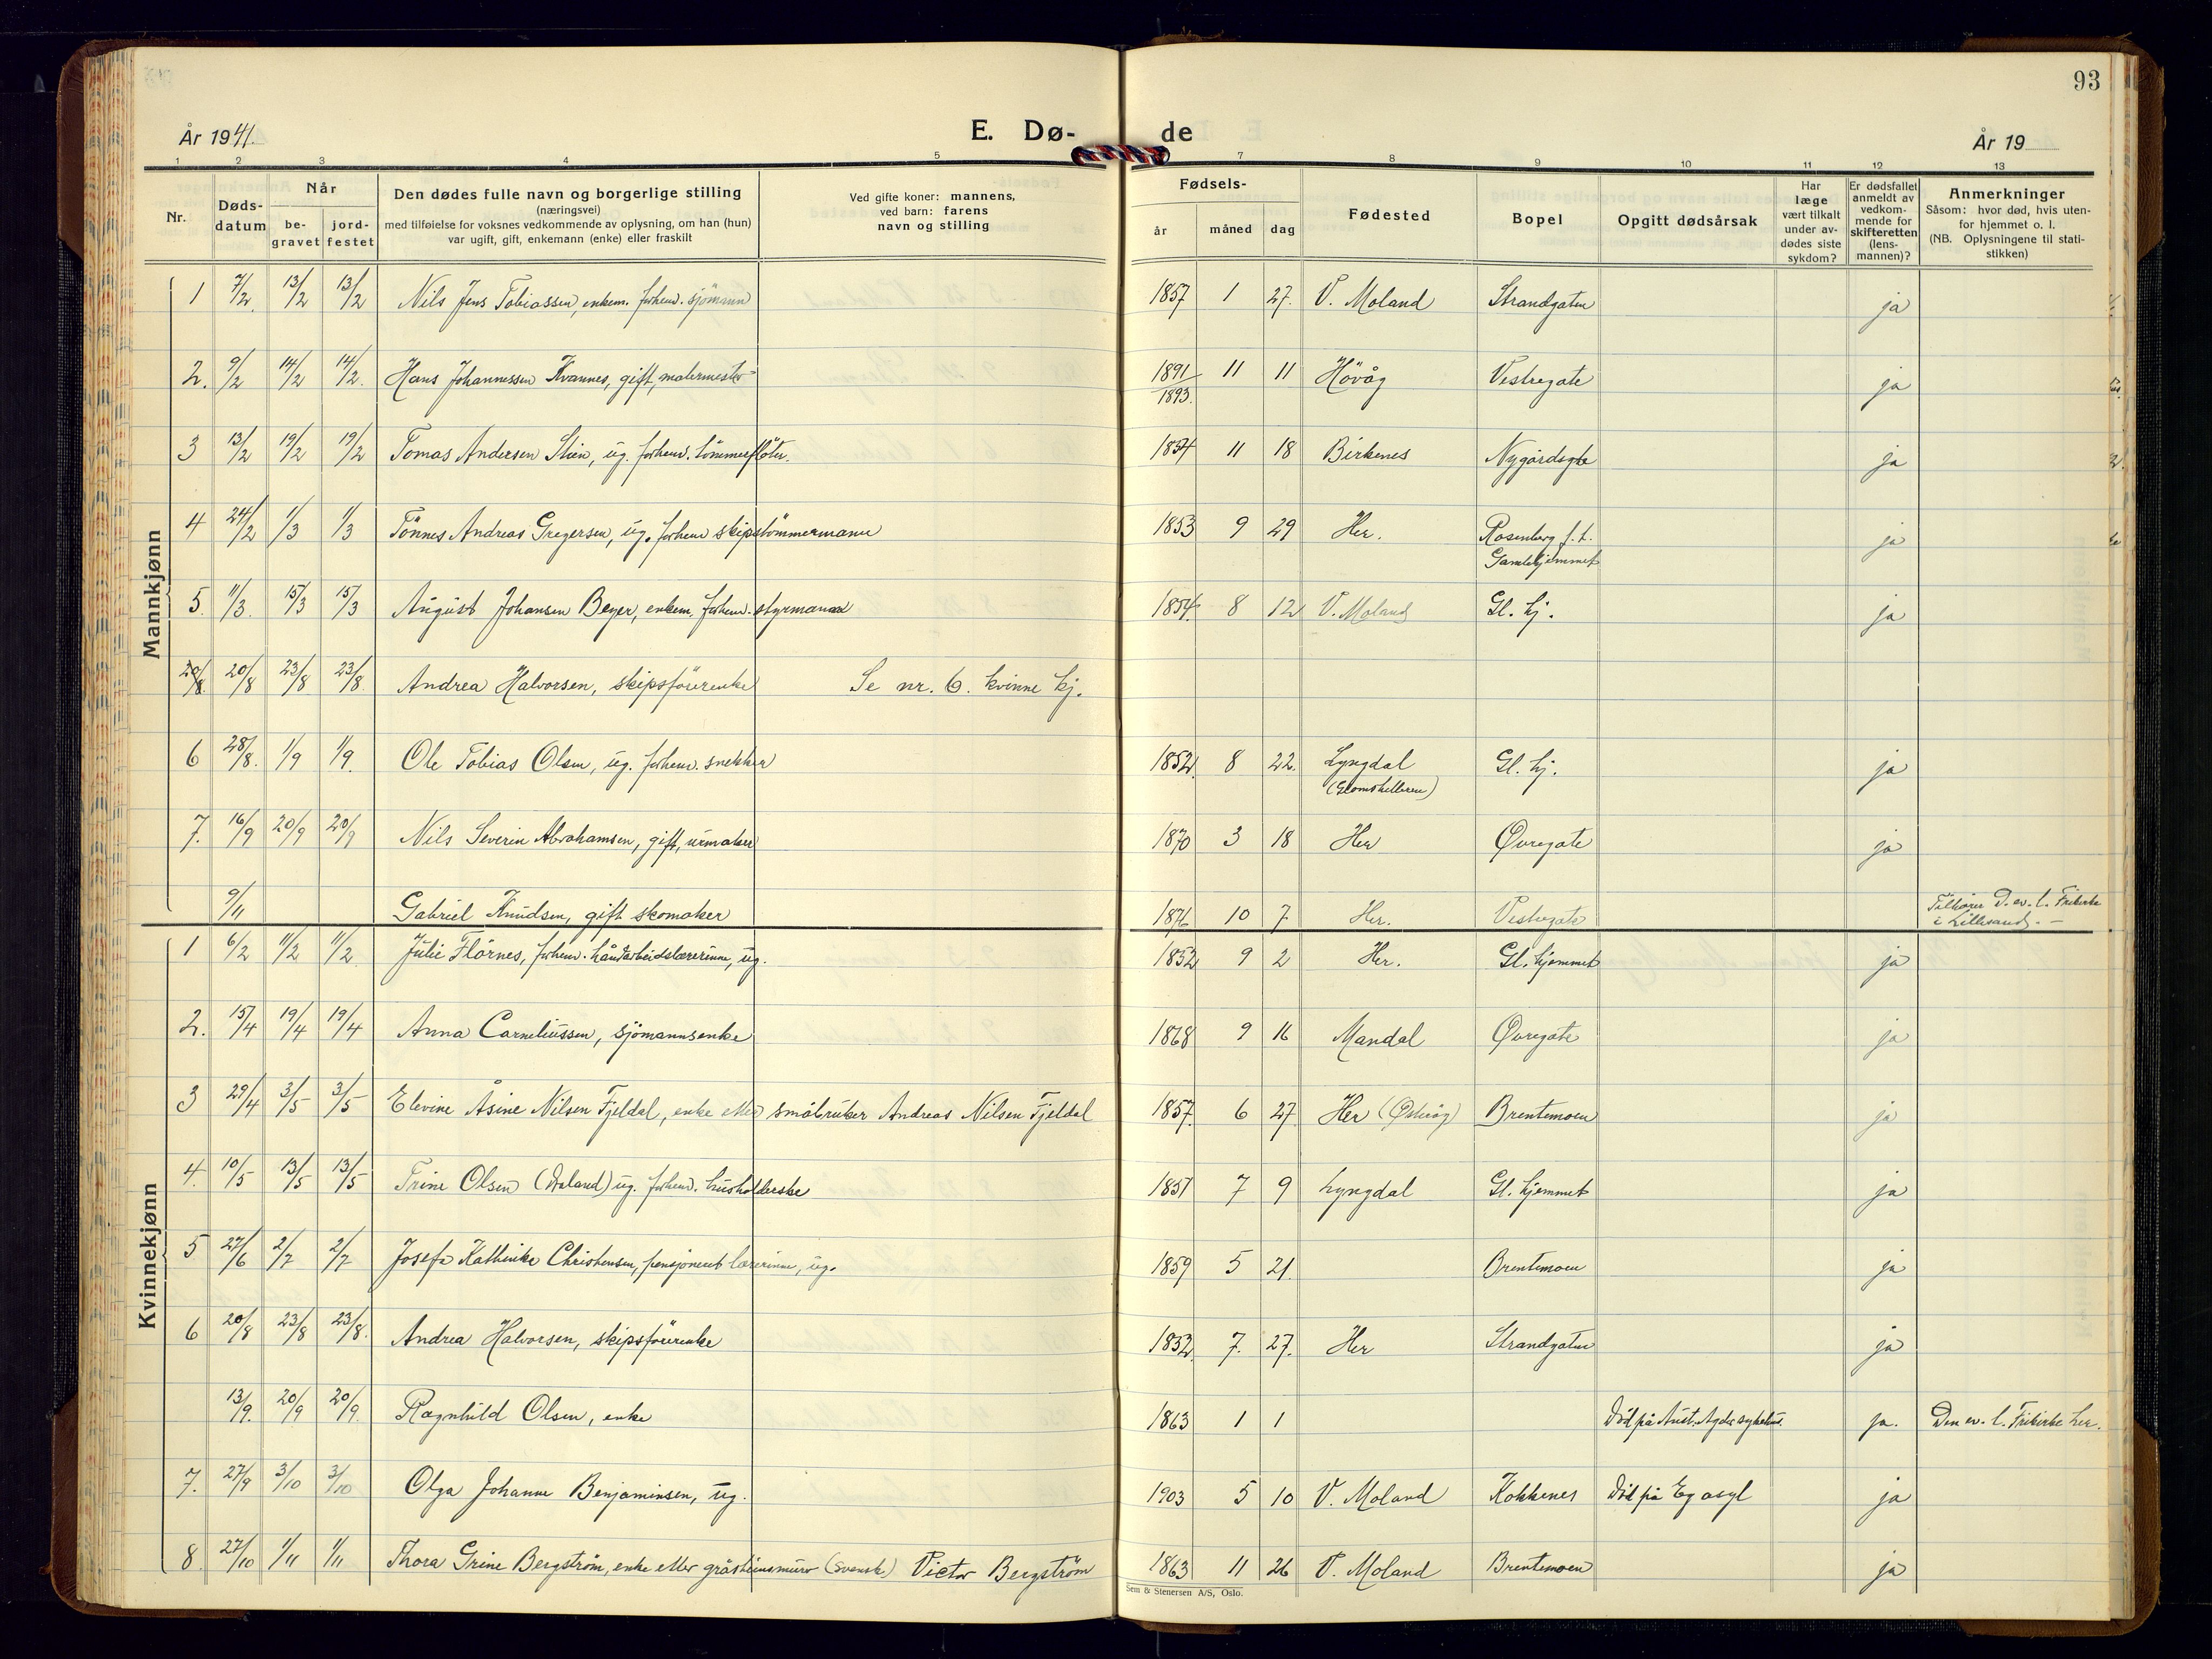 93
År 1941.
E. Dø-
de
År 19
1 2 3 4 5 7 8 9 10 11 12 13
Nr.
Døds-
datum
Når
be-
gravet
jord-
festet
Den dødes fulle navn og borgerlige stilling
(næringsvei)
med tilføielse for voksnes vedkommende av oplysning, om han (hun)
var ugift, gift, enkemann (enke) eller fraskilt
Ved gifte koner: mannens,
ved barn: farens
navn og stilling
Fødsels-
år
måned
dag
Fødested
Bopel
Opgitt dødsårsak
Har
læge
vært tilkalt
under av-
dødes siste
sykdom?
Er dødsfallet
anmeldt av
vedkom-
mende for
skifteretten
(lens-
mannen)?
Anmerkninger
Såsom: hvor død, hvis uten-
for hjemmet o. l.
(NB. Oplysningene til stati-
stikken)
Mannkjønn
1 7/2. 13/2 13/2 Nils Jens Tobiassen, enkem. forhenv. sjömann 1857 1 27. V. Moland Strandgaten ja
2. 9/2 14/2 14/2. Hans Johannessen Kvannes, gift, malermester 1891 11 11 Hövåg Vestregate ja
1893.
3 13/2 19/2 19/2 Tomas Andersen Stien, ug. forhenv. tömmerflöter. 1854 11 18 Birkenes Nygårdsgte ja
4 24/2 1/3 1/3 Tönnes Andreas Gregersen, ug. forhenv skipstömmermann 1853 9 29 Her. Rosenborg f. t. ja
Gamlehjemmet
5. 11/3. 15/3 15/3 August Johansen Beyer, enkem. forhenv. styrmann 1854 8 12 V. Moland Gl. hj. ja
20/8. 20/8 23/8 23/8. Andrea Halvorsen, skipsförerenke Se nr. 6. kvinne kj.
6 28/8. 1/9 1/9. Ole Tobias Olsen, ug. forhenv. snekker 1852 8 22. Lyngdal Gl. hj. ja
7. 16/9 20/9 20/9 Nils Severin Abrahamsen, gift, urmaker 1870 3 18 Her Øvregate ja
9/11 Gabriel Knudsen, gift skomaker 1876 10 7 Her. Vestregate Tilhører D. ev. l. Frikirke
i Lillesand. -
Kvinnekjønn
1 6/2 11/2 11/2 Julie Flörnes, forhenv. håndarbeidslærerinne, ug. 1852 9 2 Her. Gl. hjemmet ja
2. 15/4 19/4 19/4 Anna Corneliussen, sjömannsenke 1868 9 16 Mandal Øvregate ja
3 29/4 3/5 3/5 Elevine Åsine Nilsen Fjeldal, enke etter småbruker Andreas Nilsen Fjeldal 1857. 6 27 Her Brentemoen ja
4. 10/5 13/5 13/5 Trine Olsen ug. forhenv. husholderske 1851 7 9 Lyngdal Gl. hjemmet ja
5 27/6 2/7 2/7 Josefa Kathinka Christensen, pensjonert lærerinne, ug. 1859 5 21. Brentemoen ja
6 20/8 23/8 23/8. Andrea Halvorsen, skipsförerenke 1852 7. 27. Her Strandgaten ja
13/9. 20/9 20/9. Ragnhild Olsen, enke 1863 1 1 Död på Aust. Agder sykehus. ja. Den ev. l. Frikirke her.
7. 27/9 3/10 3/10 Olga Johanne Benjaminsen, ug. 1903 5 10 V. Moland Kokkenes Död på Eg asyl ja
8. 27/10 1/11 1/11 Thora Grine Bergström, enke etter gråsteinsmurer (svensk.) Victor Bergström 1863 11 26 V. Moland Brentemoen ja
Sem & Stenersen A/S, Oslo.